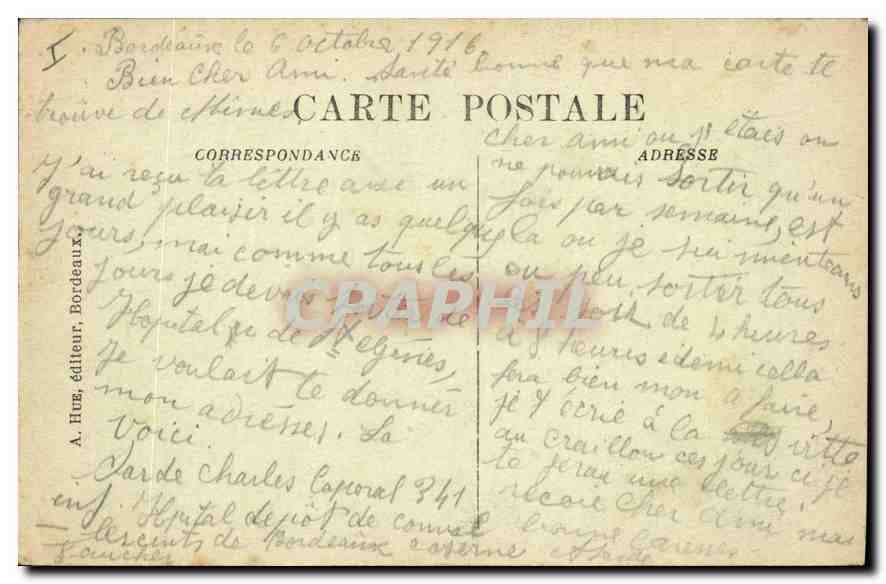 I. Bordeaux le 6 octobre 1916
Bien Cher Ami. Santé bonne que ma carte te
trouve de Mimes
CARTE POSTALE
CORRESPONDANCE
J'ai reçu ta lettre avec un
grand plaisir il y as quelque
jours, mai comme tous les
jours je devais de
Hopital de St
je voulait te donner
mon adresses. La
voici.
Sarde Charles Caporal 341
inf. Hopital depôt de conval
lescents de Bordeaux caserne
Faucher
ADRESSE
cher ami ou j'étais on
ne pouvais sortir qu'un
fois par semaine, est
la ou je sui
on peu sortir tous
de 4 heures
a 8 heures edemi cella
fera bien mon afaire,
je t écrie à la vitte
au craillon ces jour ci je
te ferai une lettre,
recoie Cher Ami mes
bonne Caresses.
Sarde
A. HUE, éditeur, Bordeaux.
CPAPHIL